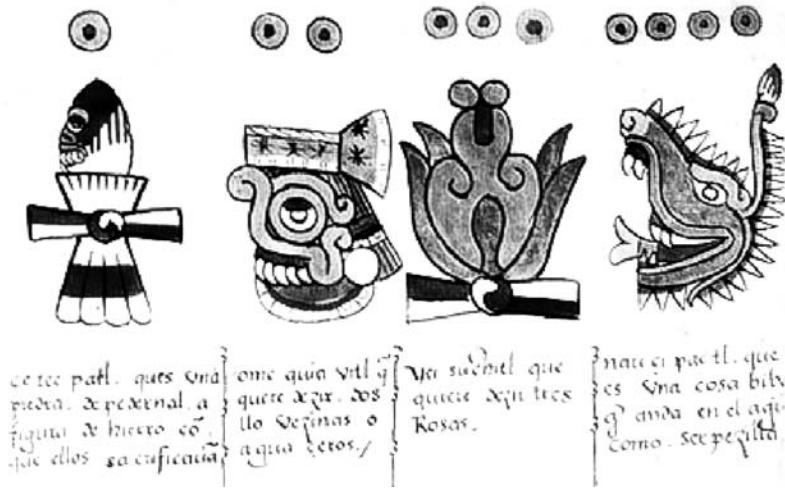 ce tec patl. ques Una
piedra. de pedernal. a
figura de hierro cõ.
que ellos sacrificaua
ome quia vitl q̃
quere dezir. dos
llo vezinas o
agua çeros./
Yei suchitl que
quiere dezir tres
Rosas.
naui ci pactl. que
es Una cosa biba
q̃ anda en el agua
como. serpezilla